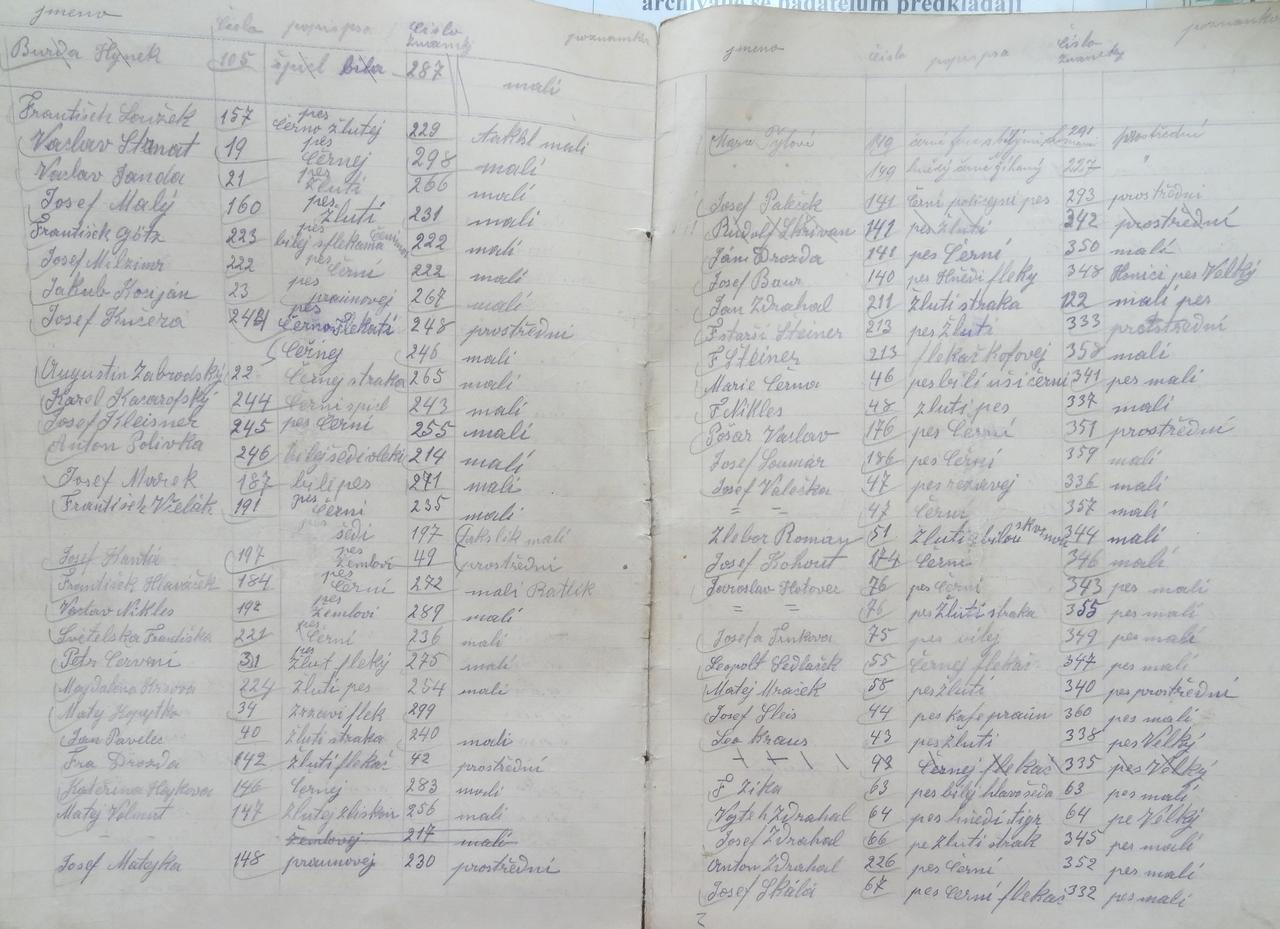 archiválie se badatelům předkládají
jmeno číslo popis psa číslo známky poznamka
Burda Hynek 105 špicl bíla 287 malí
František Loužek 157 pes černo žlutej 229 malí
Vaclav 19 pes Černej 298 malí
Vaclav Janda 21 pes žlutí 266 malí
Josef Malý 160 pes žlutí 231 malí
František Götz 223 pes bílej s flekama 222 malí
Josef 222 pes Černí 222 malí
Jakub Kociján 23 pes praunovej 267 malí
Josef Kučera 244 pes Černoflekatí 248 prostřední
Černej 246 malí
Augustin Zabrodský 22 Černej straka 265 malí
Karel 244 Černí špicl 243 malí
Josef Kleisner 245 pes Černí 255 malí
Anton Polivka 246 bílej šedi 214 malí
Josef Marek 187 bylí pes 271 malí
František 191 pes Černí 235 malí
šedi 197 malí
Josef 197 pes žemloví 49 prostřední
František Hlaváček 184 pes Černí 272 malí Ratlik
Vaclav Nikles 192 pes žemloví 289 malí
Světelska Františka 221 pes Černí 236 malí
Petr Cervení 311 pes žlut fleký 275 malí
Magdalena 224 žlutí pes 254 malí
Matej Kopytko 34 Zrzaví flek 299
Jan Pavelec 40 žlutí straka 240 malí
Fra Drozda 142 žlutí flekač 42 prostřední
Kateřina 146 Černej 283 malí
Matej 147 žlutej 256 malí
žemlovej 217 malí
Josef Matejka 148 praunovej 230 prostřední
jmeno číslo popis psa číslo známky poznamka
Marie Tylová 149 291 prostřední
149 227 "
Josef Paleček 141 Černí pes 293 prostřední
Rudolf Skřivan 142 pes žlutí 242 prostřední
Ján Drozda 141 pes Černí 350 malí
Josef Baur 140 pes Hnědí fleky 348 pes Velký
Jan Zdrahal 211 žlutí straka 122 malí pes
F starší Steiner 213 pes žlutí 333 prostřední
F Steiner 213 flekač kofovej 358 malí
Marie Černa 46 pes bílí uši černí 341 pes malí
F Nikles 48 žlutí pes 337 malí
Pošar Vaclav 176 pes Černí 351 prostřední
Josef Loumar 186 pes Černí 359 malí
Josef Valeška 47 pes rezavej 336 malí
= = 47 Černí 357 malí
Zlebor Roman 51 žlutí a bílou 344 malí
Josef Kohout 174 Černí 346 malí
Jaroslav Hotovec 76 pes Černí 343 pes malí
= = 76 pes žlutí straka 355 pes malí
Josefa 75 pes bílej 349 pes malí
Leopolt Sedlaček 55 Černej flekač 347 pes malí
Matej Mraček 58 pes žlutí 340 pes prostřední
Josef Sleis 44 pes kafe praun 360 pes malí
Leo Kraus 43 pes žlutí 338 pes Velký
93 Černej flekač 335 pes Velký
F Zika 63 pes bilý hlava šeda 63 pes malí
Vojteh Zdrahal 64 pes hnedí tigr 64 pe Velký
Josef Zdrahal 66 pe žlutí strak 345 pes malí
Anton Zdrahal 226 pes Černí 352 pes malí
Josef Skálá 67 pes Černí flekač 332 pes malí